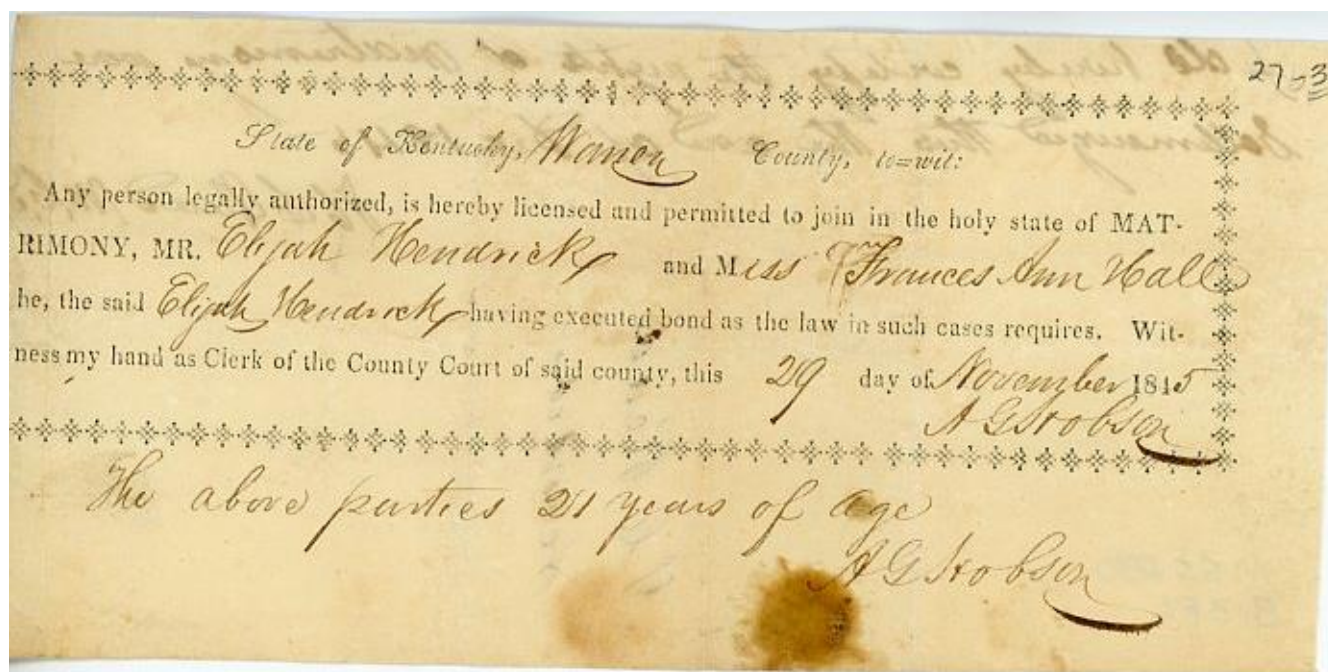 27-3
State of Kentucky, Warren County, to=wit:
Any person legally authorized, is hereby licensed and permitted to join in the holy state of MAT-
RIMONY, MR. Elijah Hendrick and Miss Frances Ann Hall
he, the said Elijah Hendrick having executed bond as the law in such cases requires. Wit-
ness my hand as Clerk of the County Court of said county, this 29 day of November 1845
A G Hobson
The above parties 21 years of age
A G Hobson